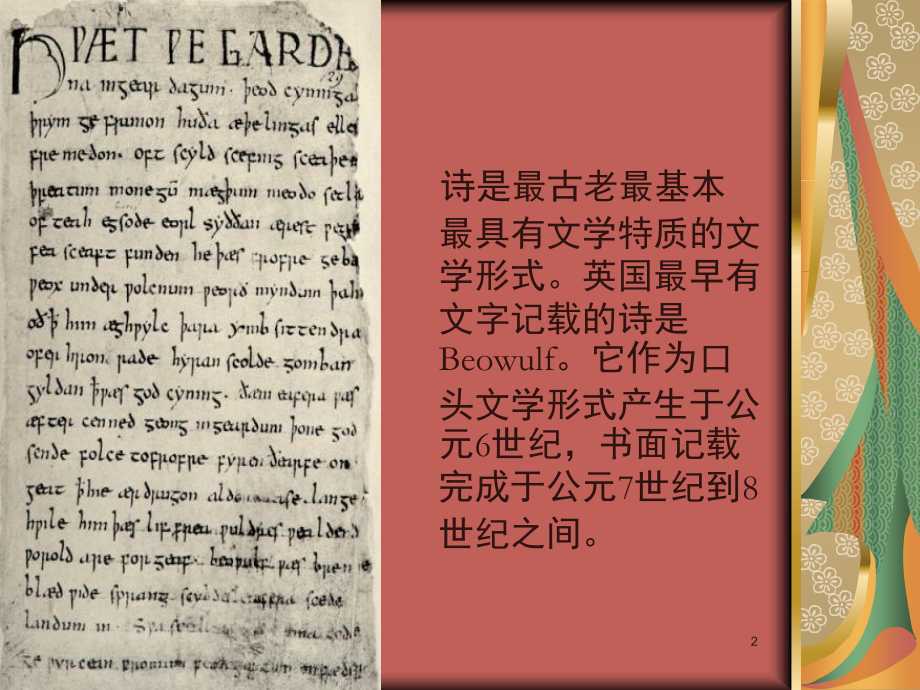 HǷÆT ǷE GARDE
na ingear dagum. þeod cyninga
þrym ge frunon huða æþelingas elle
fre medon. oft scyld scefing sceaþe
þreatum monegū mægþum meodo setla
of teah egsode eorl syððan ærest ƿear
fea sceaft funden he þæs frofre geba
ƿeox under ƿolcnum ƿeorð myndum þah
oð ꝥ him æghƿylc þara ymb sittendra
ofer hron rade hyran scolde gomban
gyldan ꝥ ƿæs god cyning. ðæm eafera ƿæs
æfter cenned geong in geardum þone god
sende folce tofrofre fyren ðearfe on
geat ꝥ hie ær drugon aldor ase. lange
hƿile him þæs lif frea ƿuldres ƿealdend
ƿorold are for geaf. beoƿulf ƿæs breme
blæd ƿide sprang scyldes eafera scede
landum in. Sƿa sceal ma gode
ge ƿyrcean fromum feoh giftum on fæder
诗是最古老最基本
最具有文学特质的文
学形式。英国最早有
文字记载的诗是
Beowulf。它作为口
头文学形式产生于公
元6世纪，书面记载
完成于公元7世纪到8
世纪之间。
2